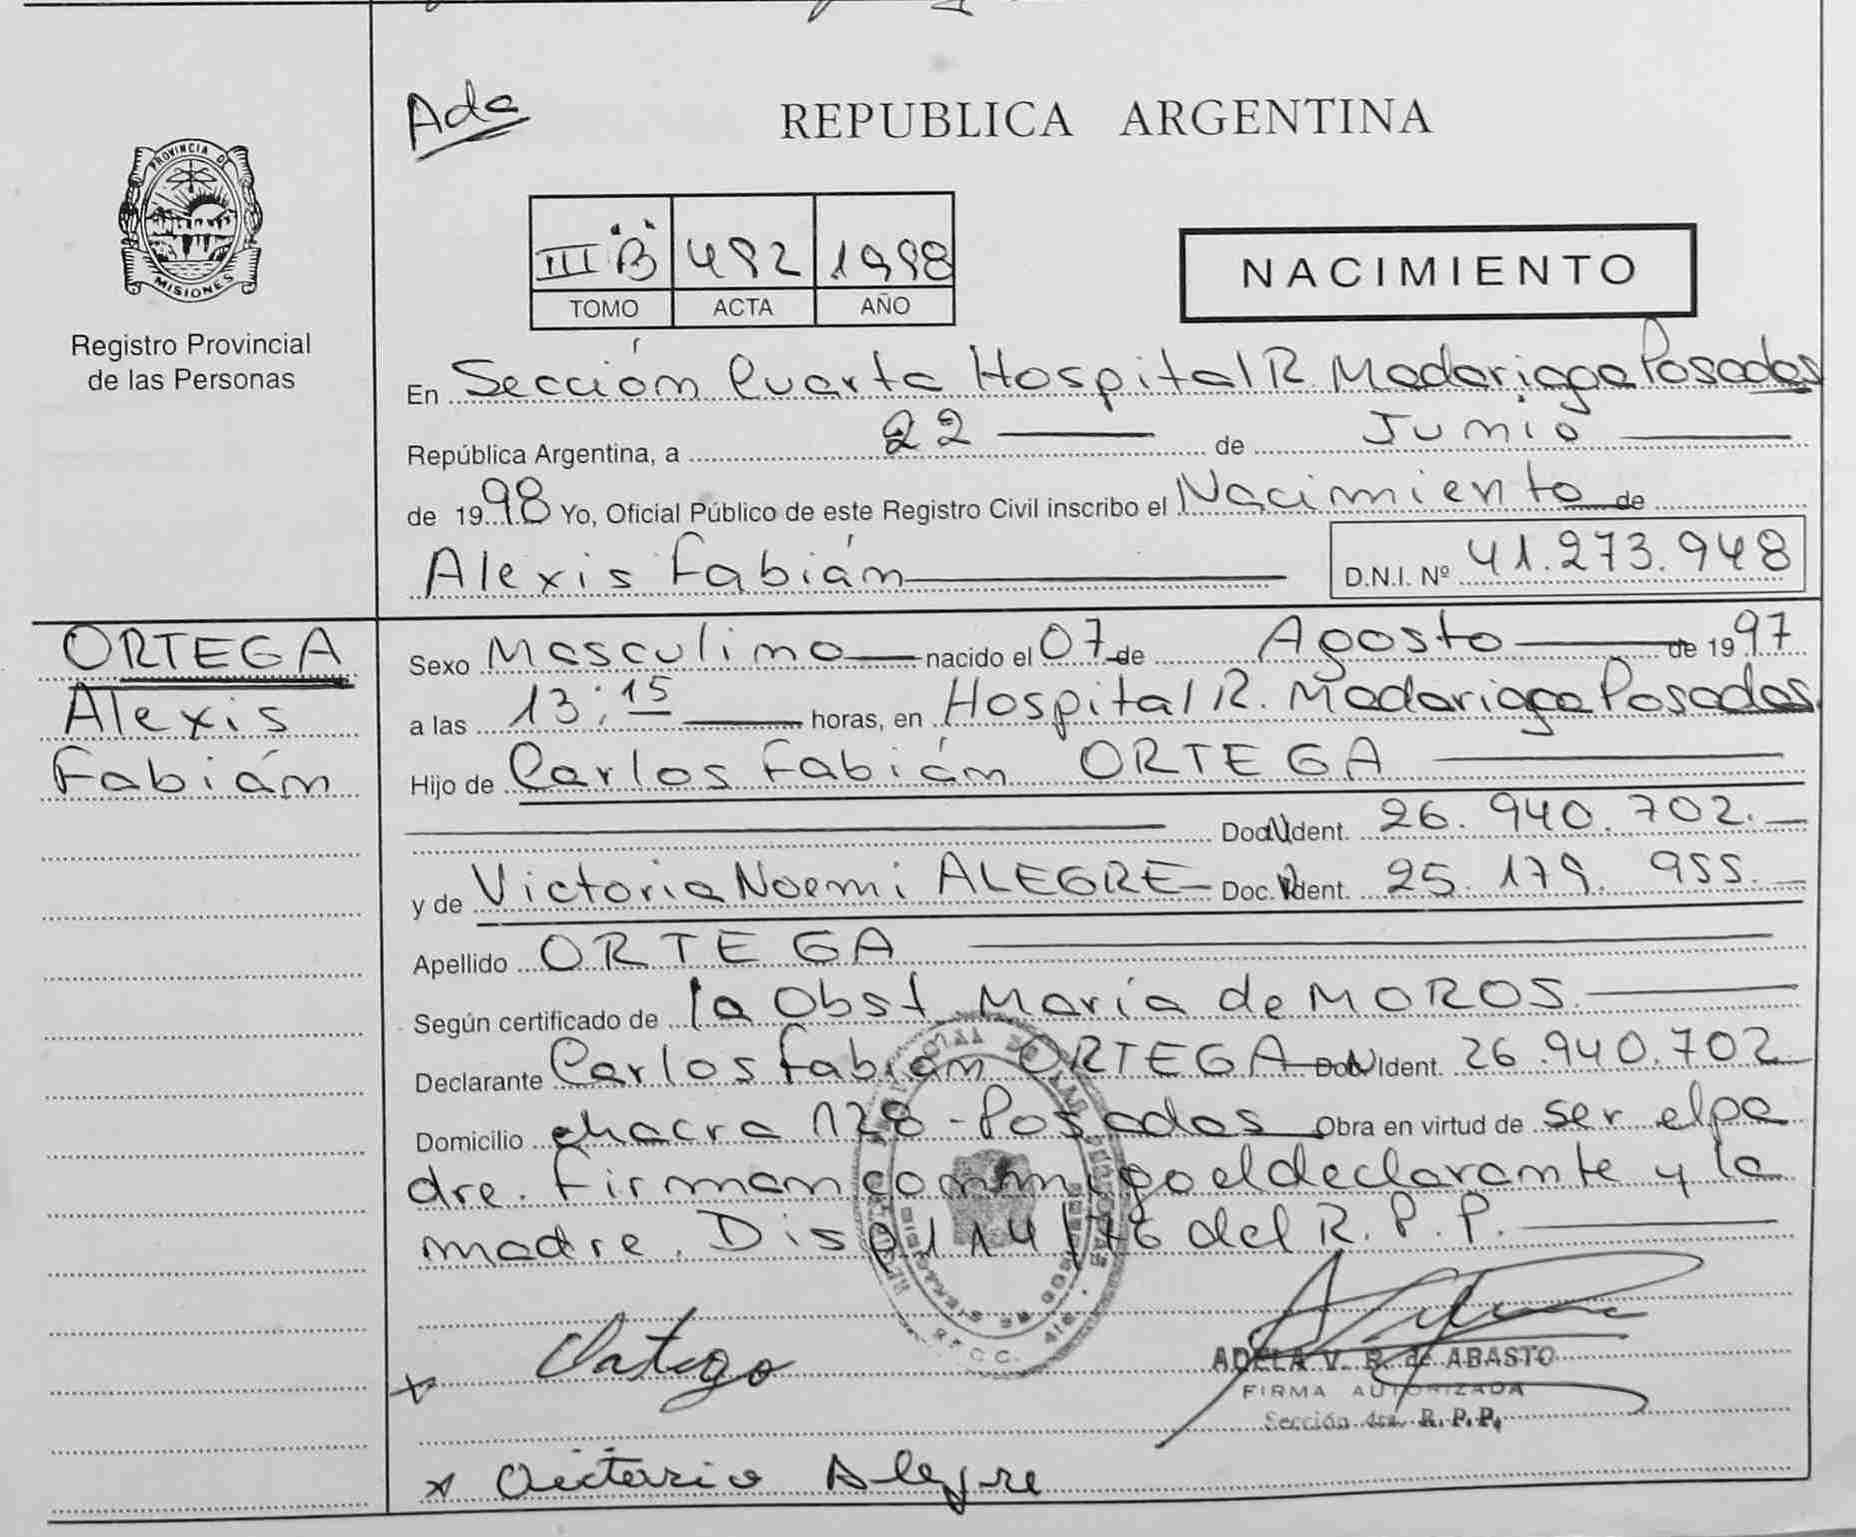 Ada
REPUBLICA ARGENTINA
PROVINCIA DE
MISIONES
Registro Provincial
de las Personas
III "B" 492 1998
TOMO ACTA AÑO
NACIMIENTO
En Sección Cuarta Hospital R. Madariaga Posadas
República Argentina, a 22 de Junio
de 1998 Yo, Oficial Público de este Registro Civil inscribo el Nacimiento de
Alexis Fabián D.N.I. Nº 41.273.948
ORTEGA
Alexis
Fabián
Sexo Masculino nacido el 07 de Agosto de 1997
a las 13:15 horas, en Hospital R. Madariaga Posadas
Hijo de Carlos Fabián ORTEGA
Doc. Ident. 26.940.702.
y de Victoria Noemi ALEGRE Doc. Ident. 25.179.955.
Apellido ORTEGA
Según certificado de la Obst María de MOROS.
Declarante Carlos Fabián ORTEGA Doc. Ident. 26.940.702
Domicilio chacra 128 - Posadas Obra en virtud de ser el pa
dre. Firman conmigo el declarante y la
madre. Disp 114/76 del R. P. P.
Ortega
ADELA V. B. de ABASTO
FIRMA AUTORIZADA
Sección 4ta. R. P. P.
x Victoria Alegre